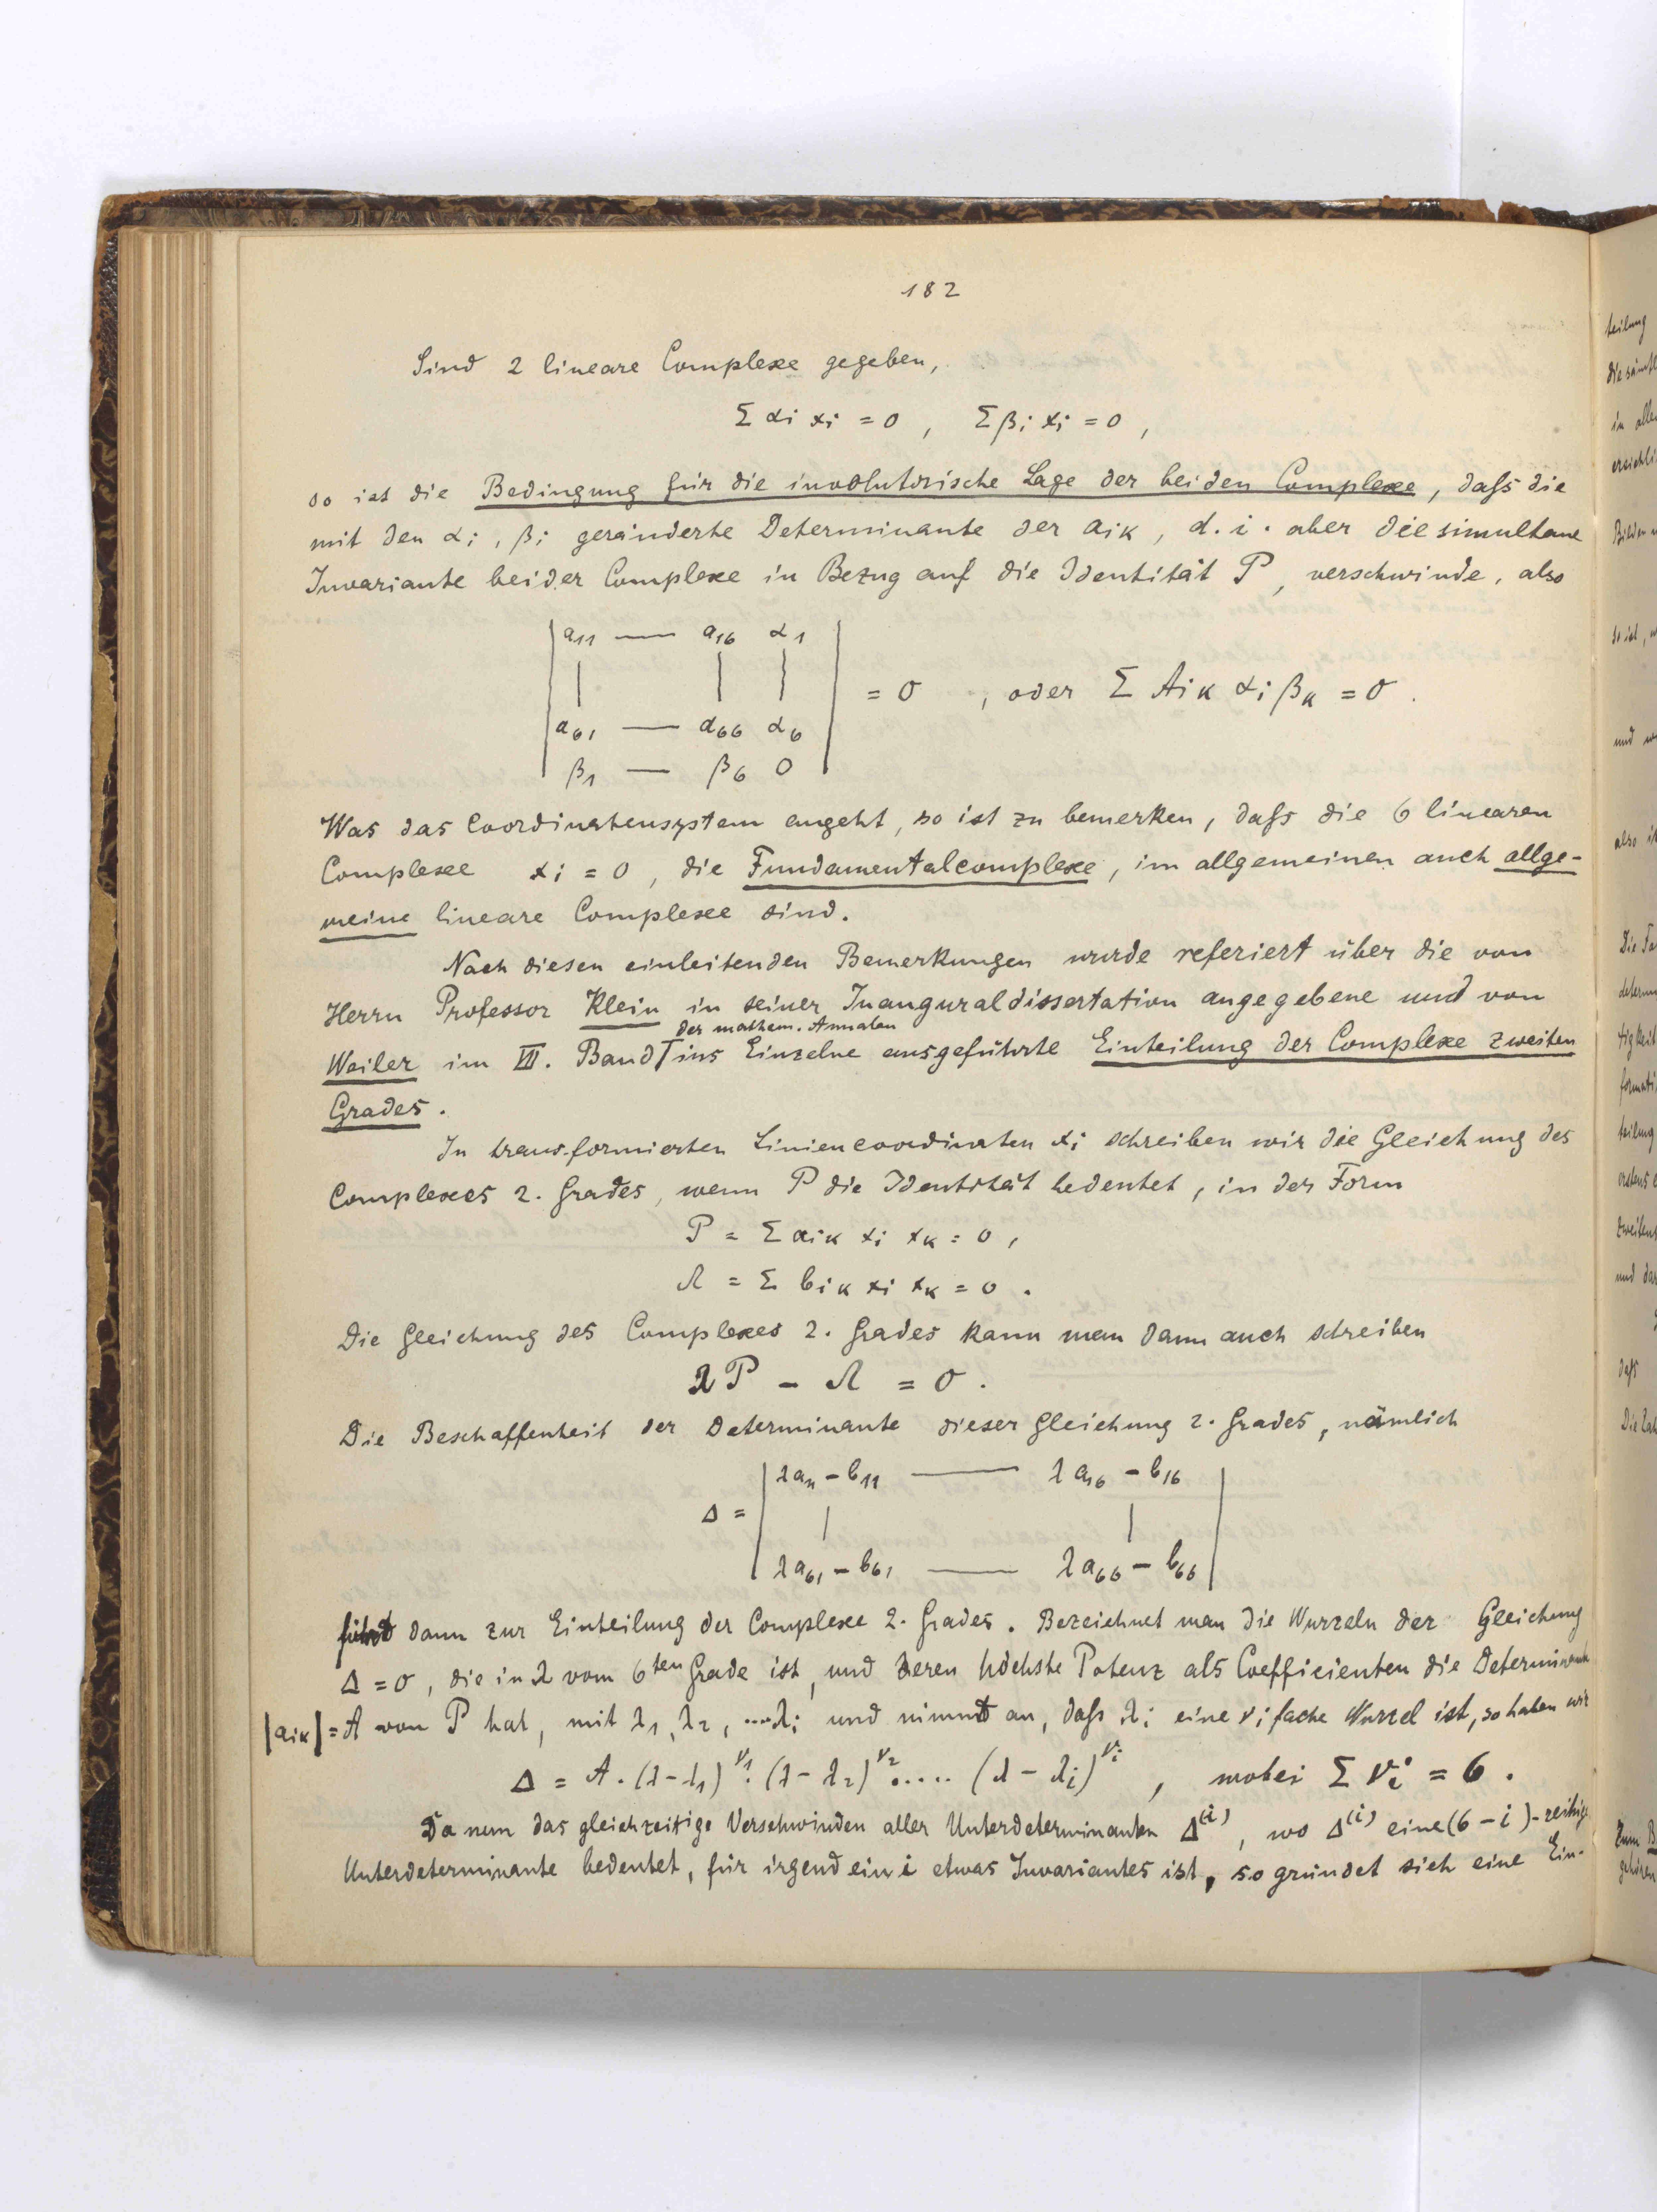 182
Sind 2 lineare Complexe gegeben,
Σ αi xi = 0 , Σ βi xi = 0 ,
so ist die Bedingung für die involutorische Lage der beiden Complexe, daſs die
mit den αi, βi geränderte Determinante der aik, d. i. aber die simultane
Invariante beider Complexe in Bezug auf die Identität P, verschwinde, also
| a11 — a16 α1 |
| | | | | = 0 , oder Σ Aik αi βk = 0 .
| a61 — a66 α6 |
| β1 — β6 0 |
Was das Coordinatensystem angeht, so ist zu bemerken, daſs die 6 linearen
Complexe xi = 0, die Fundamentalcomplexe, im allgemeinen auch allge-
meine lineare Complexe sind.
Nach diesen einleitenden Bemerkungen wurde referiert über die von
Herrn Professor Klein in seiner Inauguraldissertation angegebene und von
der mathem. Annalen
Weiler im VII. Band ins Einzelne ausgeführte Einteilung der Complexe zweiten
Grades.
In transformierten Liniencoordinaten xi schreiben wir die Gleichung des
Complexes 2. Grades, wenn P die Identität bedeutet, in der Form
P = Σ aik xi xk = 0 ,
Λ = Σ bik xi xk = 0 .
Die Gleichung des Complexes 2. Grades kann man dann auch schreiben
λP – Λ = 0 .
Die Beschaffenheit der Determinante dieser Gleichung 2. Grades, nämlich
| λa11 – b11 — λa16 – b16 |
Δ = | | | |
| λa61 – b61 — λa66 – b66 |
führt dann zur Einteilung der Complexe 2. Grades. Bezeichnet man die Wurzeln der Gleichung
Δ = 0, die in λ vom 6ten Grade ist, und deren höchste Potenz als Coefficienten die Determinante
|aik| = A von P hat, mit λ1, λ2, ....λi und nimmt an, daſs λi eine νi fache Wurzel ist, so haben wir
Δ = A . (λ – λ1)^ν1 . (λ – λ2)^ν2 ..... (λ – λi)^νi , wobei Σ νi = 6 .
Da nun das gleichzeitige Verschwinden aller Unterdeterminanten Δ(i), wo Δ(i) eine (6 – i)-reihige
Unterdeterminante bedeutet, für irgend ein i etwas Invariantes ist, so gründet sich eine Ein-
teilung
in
so ist,
und
daſs